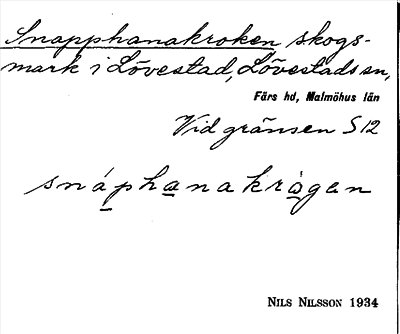 Snapphanakroken skogs-
mark i Lövestad, Lövestads sn,
Färs hd, Malmöhus län
Vid gränsen S 12
snáphanakrågen
NILS NILSSON 1934